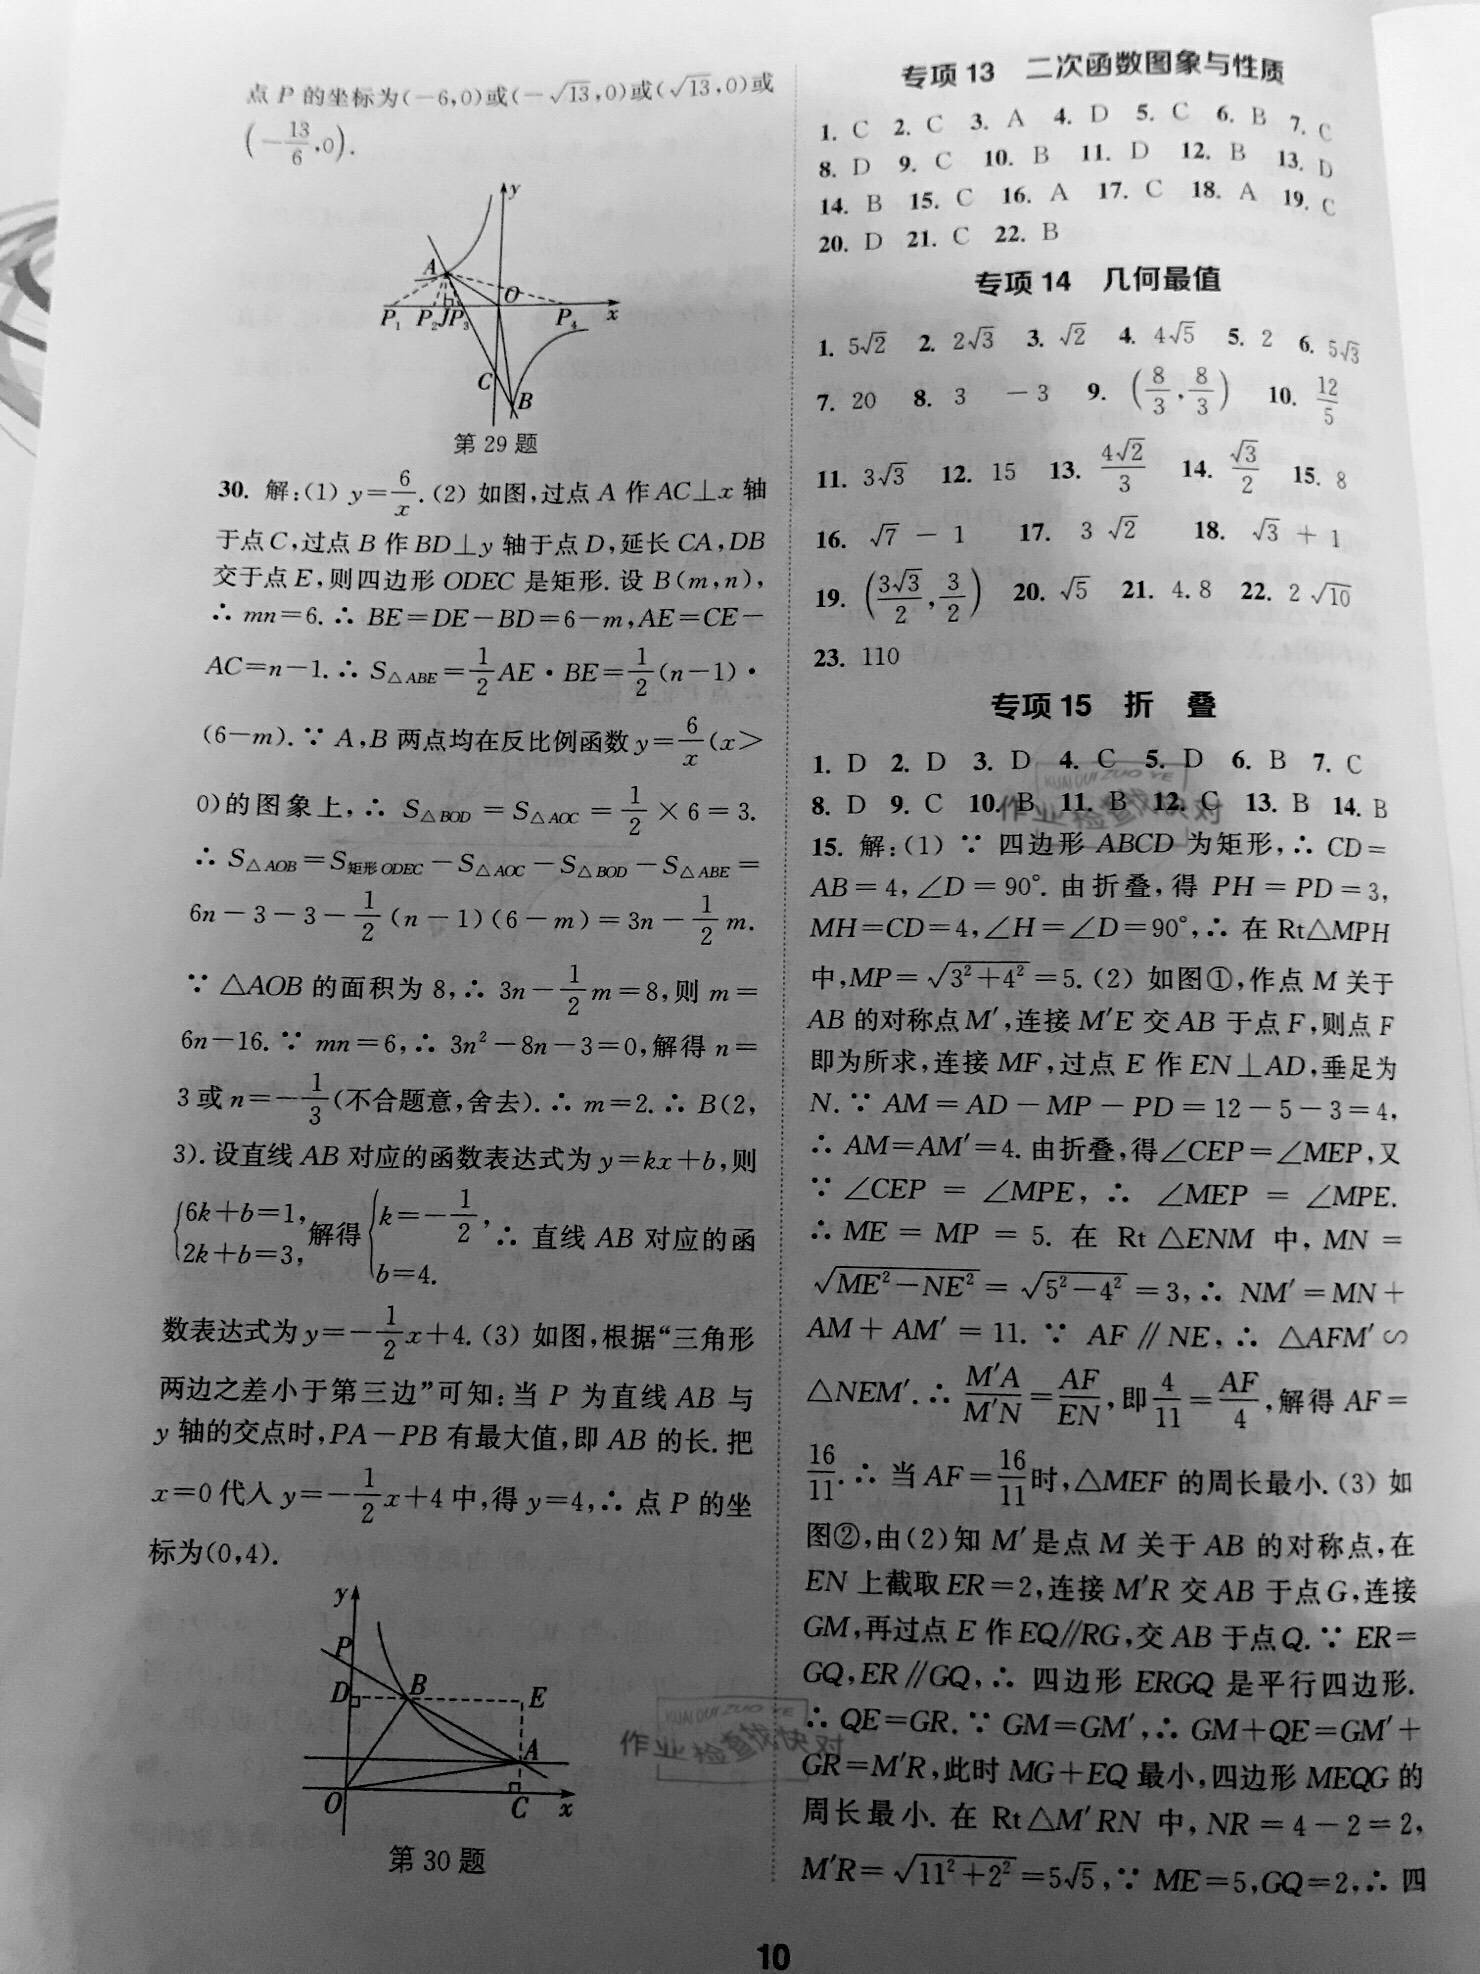 点 P 的坐标为(-6,0)或(-√13,0)或(√13,0)或
(-13/6,0).
y
A
O
P₁ P₂ J P₃ P₄ x
C
B
第 29 题
30. 解:(1) y=6/x.(2) 如图,过点 A 作 AC⊥x 轴
于点 C,过点 B 作 BD⊥y 轴于点 D,延长 CA,DB
交于点 E,则四边形 ODEC 是矩形. 设 B(m,n),
∴ mn=6. ∴ BE=DE-BD=6-m,AE=CE-
AC=n-1. ∴ S△ABE=1/2 AE·BE=1/2(n-1)·
(6-m). ∵ A,B 两点均在反比例函数 y=6/x(x>
0)的图象上,∴ S△BOD=S△AOC=1/2×6=3.
∴ S△AOB=S矩形ODEC-S△AOC-S△BOD-S△ABE=
6n-3-3-1/2(n-1)(6-m)=3n-1/2 m.
∵ △AOB 的面积为 8,∴ 3n-1/2 m=8,则 m=
6n-16. ∵ mn=6,∴ 3n²-8n-3=0,解得 n=
3 或 n=-1/3(不合题意,舍去). ∴ m=2. ∴ B(2,
3). 设直线 AB 对应的函数表达式为 y=kx+b,则
{6k+b=1, 2k+b=3, 解得 {k=-1/2, b=4. ∴ 直线 AB 对应的函
数表达式为 y=-1/2 x+4.(3) 如图,根据“三角形
两边之差小于第三边”可知:当 P 为直线 AB 与
y 轴的交点时,PA-PB 有最大值,即 AB 的长. 把
x=0 代入 y=-1/2 x+4 中,得 y=4,∴ 点 P 的坐
标为(0,4).
y
P
D B E
A
O C x
第 30 题
专项 13 二次函数图象与性质
1. C 2. C 3. A 4. D 5. C 6. B 7. C
8. D 9. C 10. B 11. D 12. B 13. D
14. B 15. C 16. A 17. C 18. A 19. C
20. D 21. C 22. B
专项 14 几何最值
1. 5√2 2. 2√3 3. √2 4. 4√5 5. 2 6. 5√3
7. 20 8. 3 -3 9. (8/3,8/3) 10. 12/5
11. 3√3 12. 15 13. 4√2/3 14. √3/2 15. 8
16. √7-1 17. 3√2 18. √3+1
19. (3√3/2,3/2) 20. √5 21. 4.8 22. 2√10
23. 110
专项 15 折 叠
1. D 2. D 3. D 4. C 5. D 6. B 7. C
8. D 9. C 10. B 11. B 12. C 13. B 14. B
15. 解:(1) ∵ 四边形 ABCD 为矩形,∴ CD=
AB=4,∠D=90°. 由折叠,得 PH=PD=3,
MH=CD=4,∠H=∠D=90°,∴ 在 Rt△MPH
中,MP=√(3²+4²)=5.(2) 如图①,作点 M 关于
AB 的对称点 M′,连接 M′E 交 AB 于点 F,则点 F
即为所求,连接 MF,过点 E 作 EN⊥AD,垂足为
N. ∵ AM=AD-MP-PD=12-5-3=4,
∴ AM=AM′=4. 由折叠,得∠CEP=∠MEP,又
∵ ∠CEP=∠MPE,∴ ∠MEP=∠MPE.
∴ ME=MP=5. 在 Rt△ENM 中,MN=
√(ME²-NE²)=√(5²-4²)=3,∴ NM′=MN+
AM+AM′=11. ∵ AF∥NE,∴ △AFM′∽
△NEM′. ∴ M′A/M′N=AF/EN,即 4/11=AF/4,解得 AF=
16/11. ∴ 当 AF=16/11 时,△MEF 的周长最小.(3) 如
图②,由(2)知 M′是点 M 关于 AB 的对称点,在
EN 上截取 ER=2,连接 M′R 交 AB 于点 G,连接
GM,再过点 E 作 EQ∥RG,交 AB 于点 Q. ∵ ER=
GQ,ER∥GQ,∴ 四边形 ERGQ 是平行四边形.
∴ QE=GR. ∵ GM=GM′,∴ GM+QE=GM′+
GR=M′R,此时 MG+EQ 最小,四边形 MEQG 的
周长最小. 在 Rt△M′RN 中,NR=4-2=2,
M′R=√(11²+2²)=5√5,∵ ME=5,GQ=2,∴ 四
KUAI DUI ZUO YE
作业检查找快对
KUAI DUI ZUO YE
作业检查找快对
10